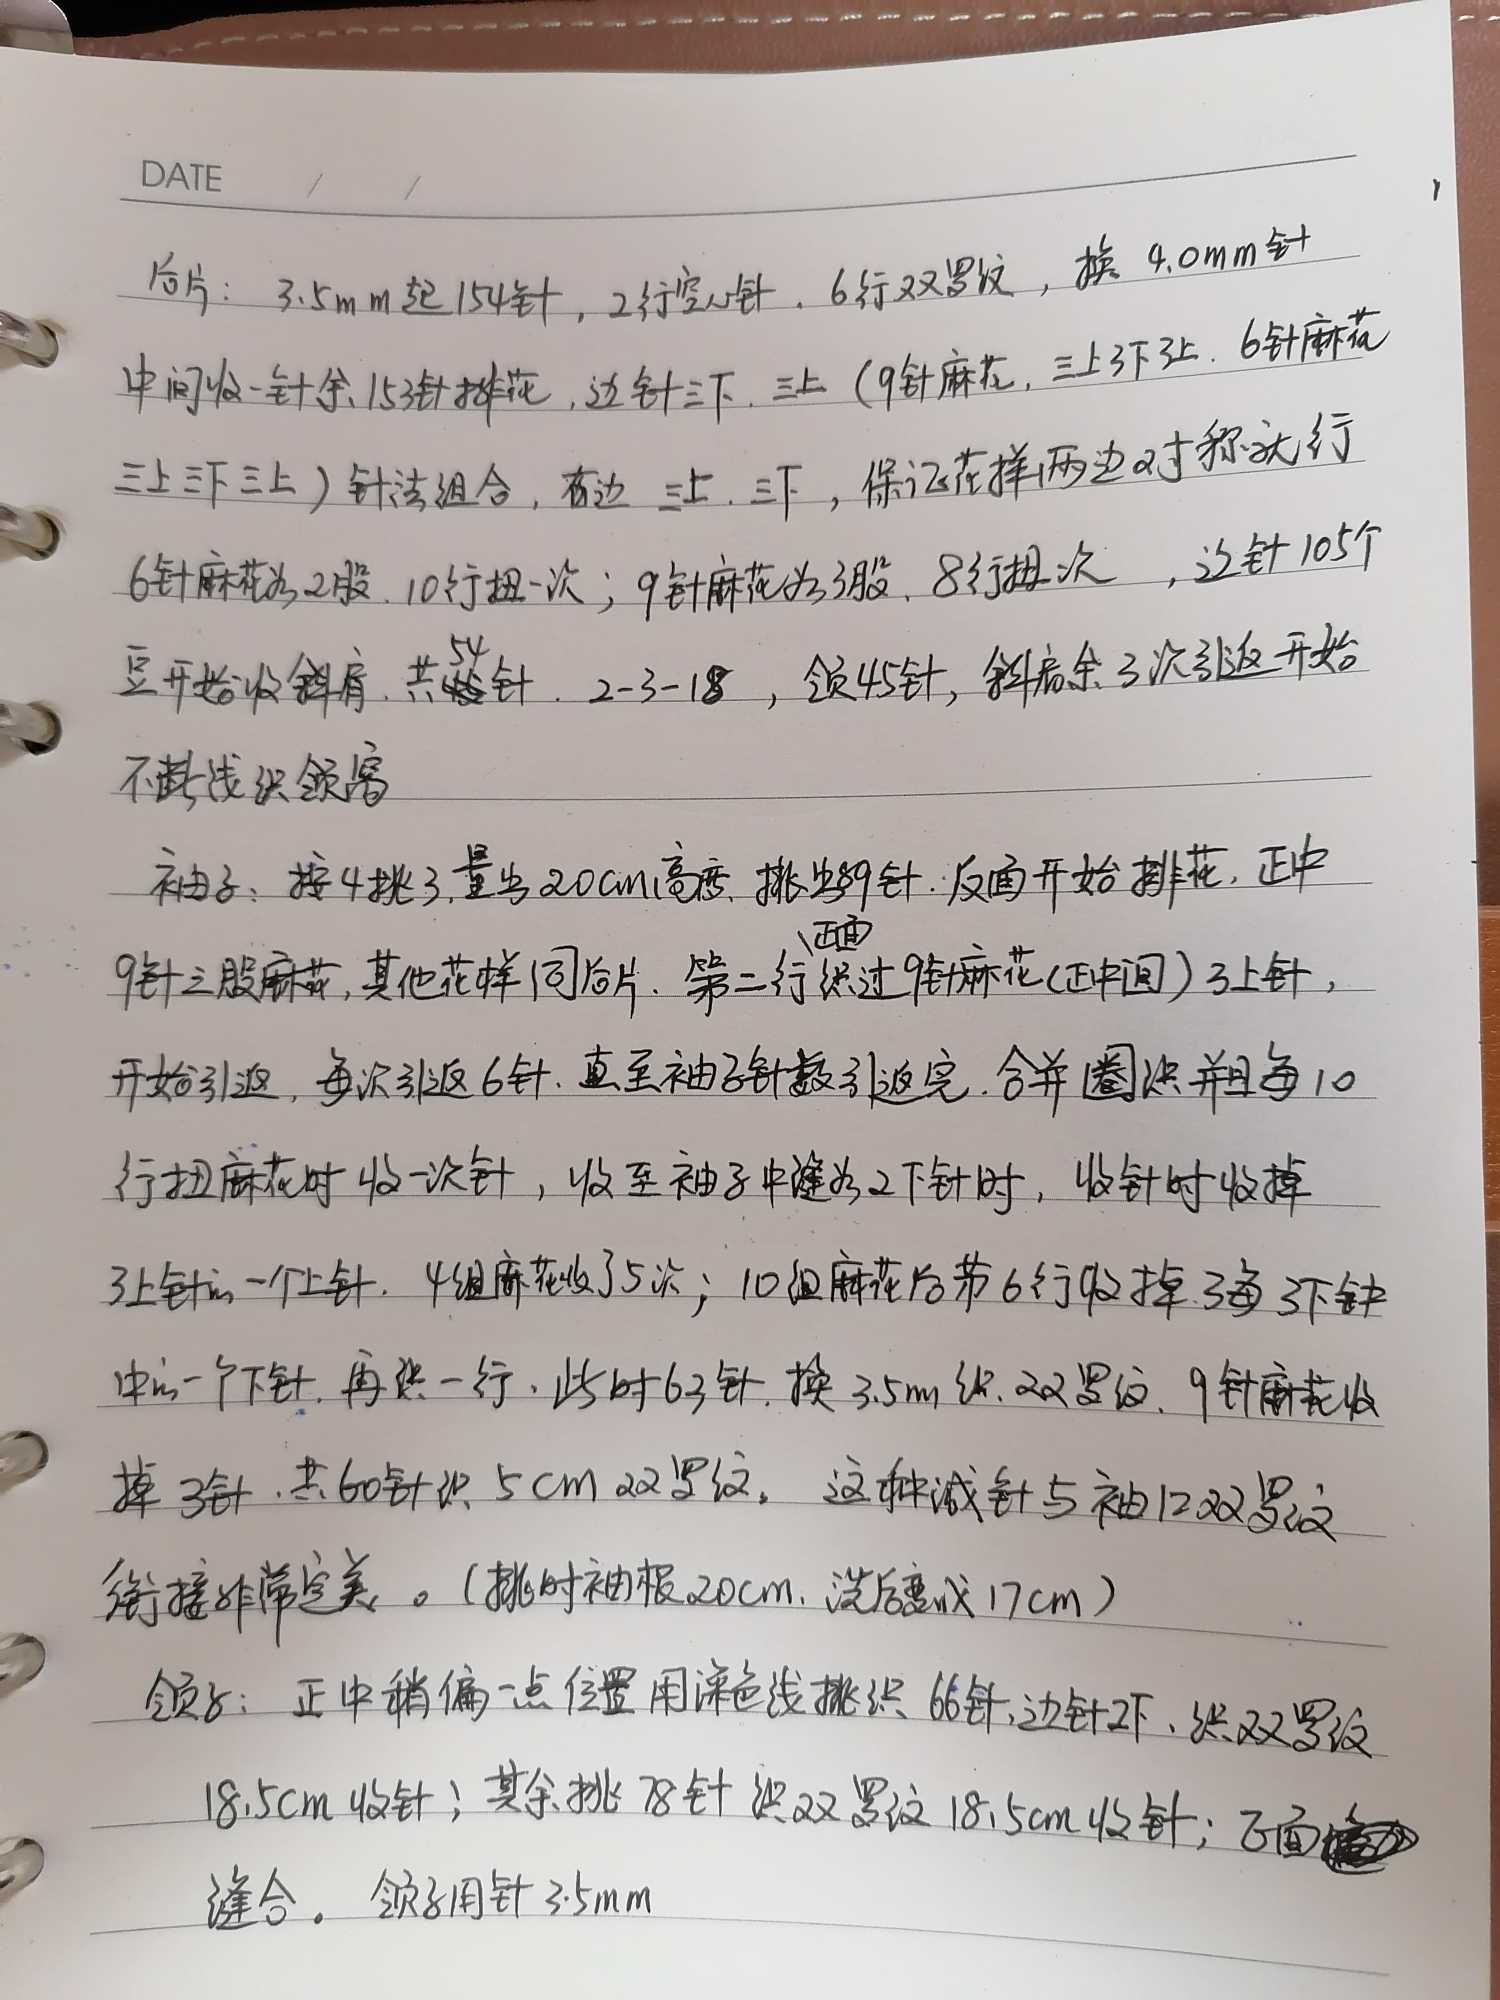 DATE / /
后片：3.5mm起154针，2行空心针．6行双罗纹，换4.0mm针
中间收一针余153针排花，边针三下．三上（9针麻花，三上3下3上．6针麻花
三上三下三上）针法组合，右边三上．三下，保证花样两边对称就行
6针麻花为2股．10行扭一次；9针麻花为3股、8行扭次，边针105个
豆开始收斜肩．共54针．2-3-18，领45针，斜肩余3次引返开始
不断线织领窝
袖子：按4挑3．量出20cm高度．挑出89针．反面开始排花．正中
9针三股麻花，其他花样同后片．第二行正面织过9针麻花(正中间)3上针，
开始引返，每次引返6针．直至袖子针数引返完．合并圈织并且每10
行扭麻花时收一次针，收至袖子中缝为2下针时，收针时收掉
3上针的一个上针．4组麻花收了5次；10组麻花后第6行收掉了每3下针
中的一个下针．再织一行、此时63针．换3.5mm织双罗纹．9针麻花收
掉3针．共60针织5cm双罗纹。这种减针与袖口双罗纹
衔接非常完美。（挑时袖根20cm．洗后变成17cm）
领子：正中稍偏一点位置用深色线挑织66针，边针2下、织双罗纹
18.5cm收针；其余挑78针织双罗纹18.5cm收针；正面
缝合。领子用针3.5mm